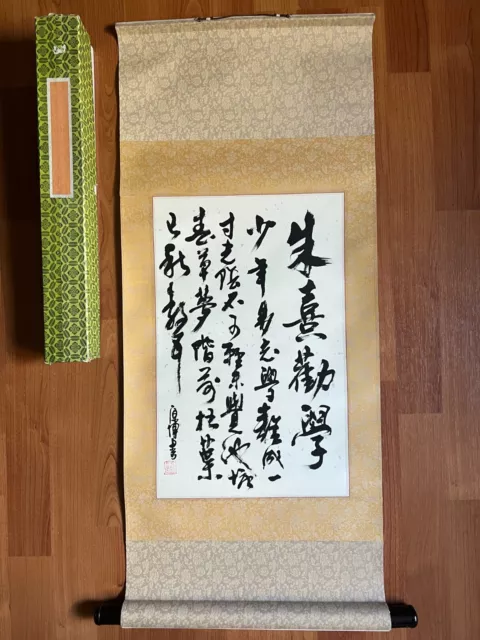 朱熹勸學
少年易老學難成一
寸光陰不可輕未覺池塘
春草夢階前梧葉
已秋聲
書